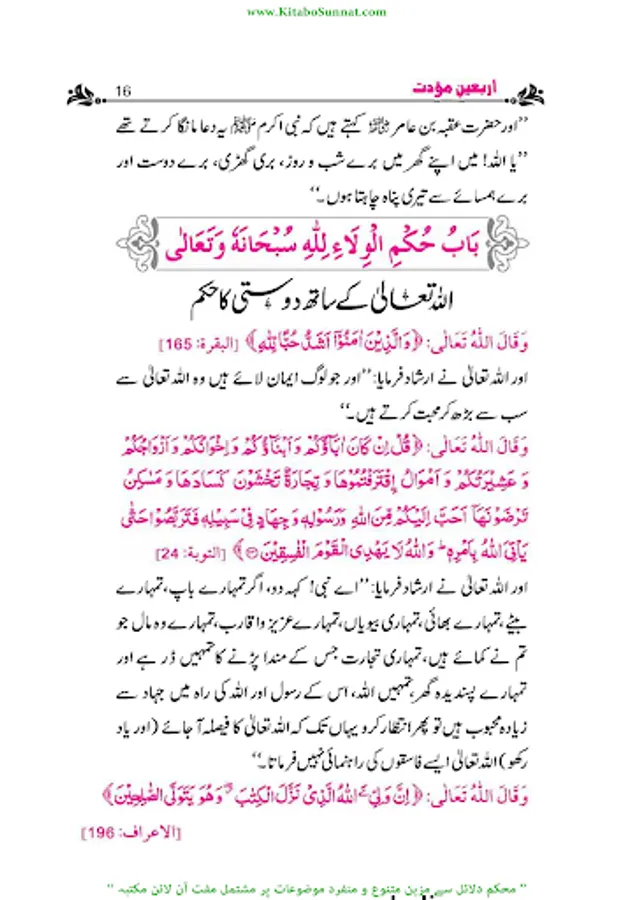 www.KitaboSunnat.com
اربعینِ مؤدت 16
’’اور حضرت عقبہ بن عامر رضی اللہ عنہ کہتے ہیں کہ نبی اکرم ﷺ یہ دعا مانگا کرتے تھے
’’یا اللہ! میں اپنے گھر میں برے شب و روز، بری گھڑی، برے دوست اور
برے ہمسائے سے تیری پناہ چاہتا ہوں۔‘‘
بَابُ حُكْمِ الْوِلَاءِ لِلّٰهِ سُبْحَانَهٗ وَتَعَالٰى
اللہ تعالیٰ کے ساتھ دوستی کا حکم
وَقَالَ اللّٰهُ تَعَالٰى: ﴿وَالَّذِيْنَ اٰمَنُوْٓا اَشَدُّ حُبًّا لِّلّٰهِ﴾ [البقرة: 165]
اور اللہ تعالیٰ نے ارشاد فرمایا: ’’اور جو لوگ ایمان لائے ہیں وہ اللہ تعالیٰ سے
سب سے بڑھ کر محبت کرتے ہیں۔‘‘
وَقَالَ اللّٰهُ تَعَالٰى: ﴿قُلْ اِنْ كَانَ اٰبَآؤُكُمْ وَاَبْنَآؤُكُمْ وَاِخْوَانُكُمْ وَاَزْوَاجُكُمْ
وَعَشِيْرَتُكُمْ وَاَمْوَالُ اِقْتَرَفْتُمُوْهَا وَتِجَارَةٌ تَخْشَوْنَ كَسَادَهَا وَمَسٰكِنُ
تَرْضَوْنَهَآ اَحَبَّ اِلَيْكُمْ مِّنَ اللّٰهِ وَرَسُوْلِهٖ وَجِهَادٍ فِيْ سَبِيْلِهٖ فَتَرَبَّصُوْا حَتّٰى
يَاْتِيَ اللّٰهُ بِاَمْرِهٖ ۗ وَاللّٰهُ لَا يَهْدِى الْقَوْمَ الْفٰسِقِيْنَ﴾ [التوبة: 24]
اور اللہ تعالیٰ نے ارشاد فرمایا: ’’اے نبی! کہہ دو، اگر تمہارے باپ، تمہارے
بیٹے، تمہارے بھائی، تمہاری بیویاں، تمہارے عزیز و اقارب، تمہارے وہ مال جو
تم نے کمائے ہیں، تمہاری تجارت جس کے مندا پڑنے کا تمہیں ڈر ہے اور
تمہارے پسندیدہ گھر، تمہیں اللہ، اس کے رسول اور اللہ کی راہ میں جہاد سے
زیادہ محبوب ہیں تو پھر انتظار کرو یہاں تک کہ اللہ تعالیٰ کا فیصلہ آ جائے (اور یاد
رکھو) اللہ تعالیٰ ایسے فاسقوں کی راہنمائی نہیں فرماتا۔‘‘
وَقَالَ اللّٰهُ تَعَالٰى: ﴿اِنَّ وَلِيِّۦَ اللّٰهُ الَّذِيْ نَزَّلَ الْكِتٰبَ ۖ وَهُوَ يَتَوَلَّى الصّٰلِحِيْنَ﴾
[الاعراف: 196]
" محکم دلائل سے مزین متنوع و منفرد موضوعات پر مشتمل مفت آن لائن مکتبہ "